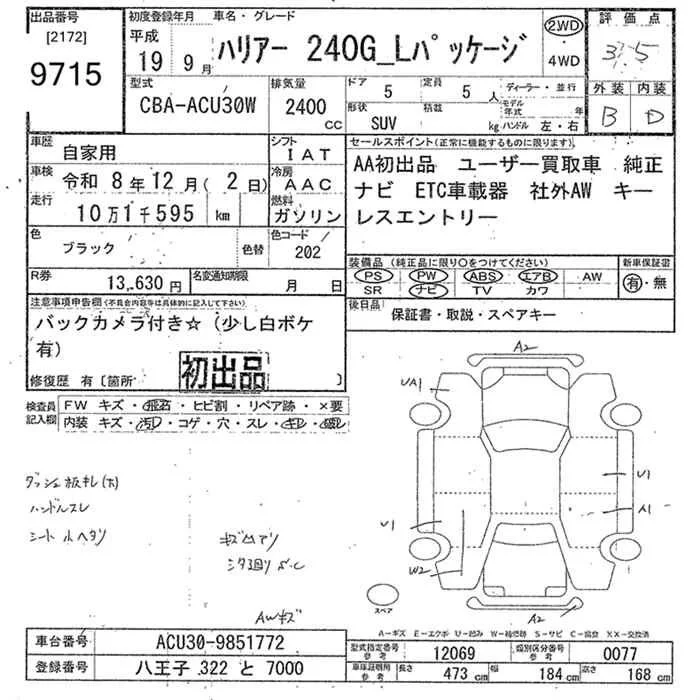 出品番号 初度登録年月 車名・グレード 評価点
[2172] 平成 2WD
9715 19 9月 ハリアー 240G_Lパッケージ 4WD 3.5
型式 排気量 ドア 定員 ディーラー・並行 外装 内装
CBA-ACU30W 2400 CC 5 5人 モデル年式 年 B D
形状 SUV 積載 kg ハンドル 左・右
車歴 自家用 シフト IAT セールスポイント(正常に機能するものに限ります)
車検 令和 8年12月(2日) 冷房 AAC AA初出品 ユーザー買取車 純正
走行 10万1千595 km 燃料 ガソリン ナビ ETC車載器 社外AW キー
レスエントリー
色 ブラック 色替 色コード 202
装備品(純正品に限り〇をつけてください) 新車保証書
R券 13,630円 名変通知期限 月 日 PS PW ABS エアB AW 有・無
SR ナビ TV カワ
注意事項申告欄(不具合内容等は具体的に記入して下さい) 後日品
保証書・取説・スペアキー
バックカメラ付き☆(少し白ボケ
有)
初出品
修復歴 有〔箇所 〕
検査員記入欄 FW キズ・飛石・ヒビ割・リペア跡・×要
内装 キズ・汚れ・コゲ・穴・スレ・
A2
UA1
U1
A1
U1
W2
A2
ハンドルスレ
シート
AWキズ
スペア
A-キズ E-エクボ U-凹み W-補修跡 S-サビ C-腐食 XX-交換済
車台番号 ACU30-9851772
型式指定番号 参考 12069 類別区分番号 参考 0077
登録番号 八王子 322 と 7000
車庫証明用 参考 長さ 473 cm 幅 184 cm 高さ 168 cm